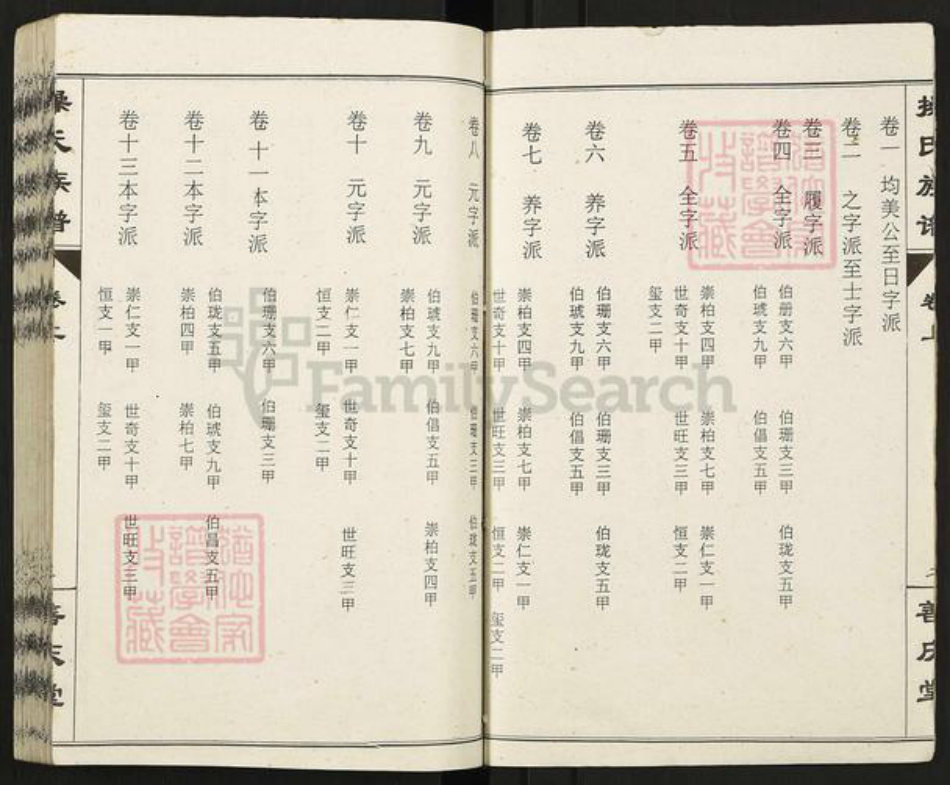 操氏族谱
卷上
善庆堂
卷一 均美公至日字派
卷二 之字派至士字派
卷三 履字派
卷四 全字派
伯册支六甲 伯珊支三甲 伯珑支五甲
伯琥支九甲 伯倡支五甲
卷五 全字派
崇柏支四甲 崇柏支七甲 崇仁支一甲
世奇支十甲 世旺支三甲 恒支二甲
玺支二甲
卷六 养字派
伯珊支六甲 伯珊支三甲 伯珑支五甲
伯琥支九甲 伯倡支五甲
卷七 养字派
崇柏支四甲 崇柏支七甲 崇仁支一甲
世奇支十甲 世旺支三甲 恒支二甲 玺支二甲
卷八 元字派
伯珊支六甲 伯珊支三甲 伯珑支五甲
卷九 元字派
伯琥支九甲 伯倡支五甲 崇柏支四甲
崇柏支七甲
卷十 元字派
崇仁支一甲 世奇支十甲 世旺支三甲
恒支二甲 玺支二甲
卷十一本字派
伯珊支六甲 伯珊支三甲
卷十二本字派
伯珑支五甲 伯琥支九甲 伯昌支五甲
崇柏四甲 崇柏七甲
卷十三本字派
崇仁支一甲 世奇支十甲 世旺支三甲
恒支一甲 玺支二甲
操氏族谱
卷上
善庆堂
FamilySearch